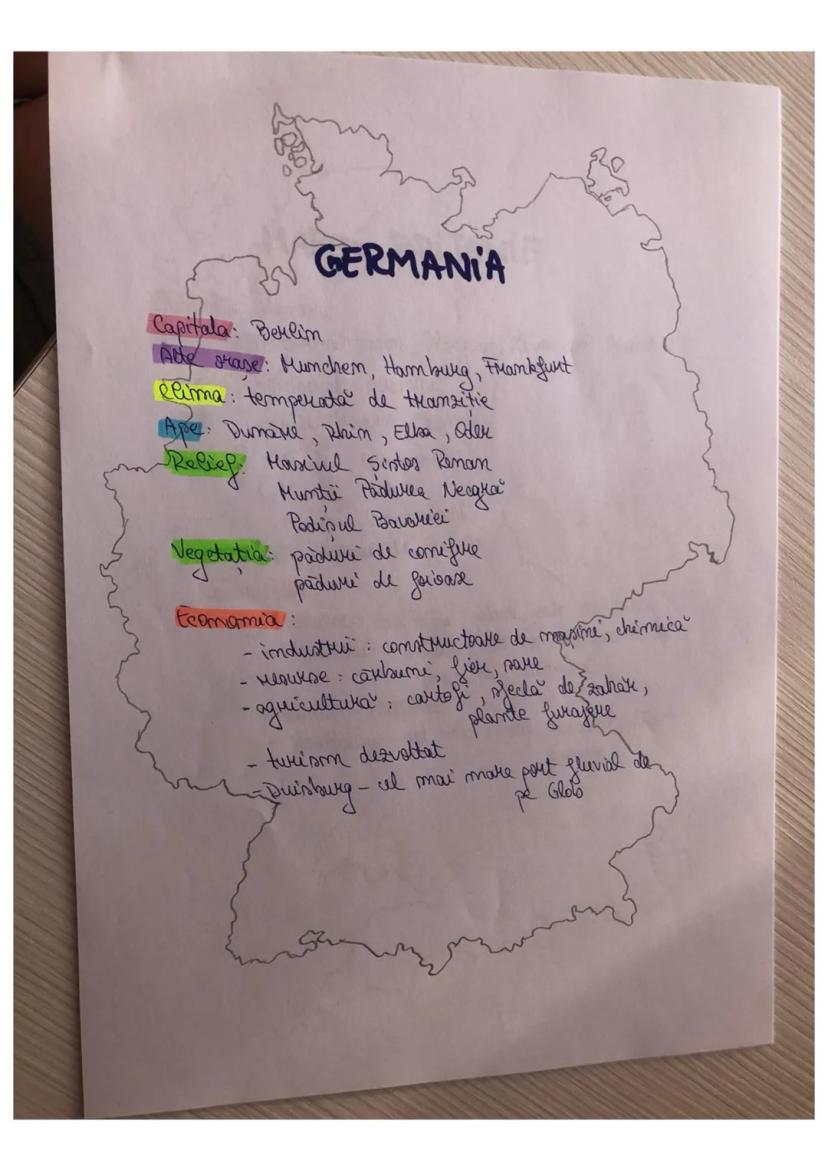 GERMANIA
Capitala: Berlin
Alte orașe: Munchen, Hamburg, Frankfurt
Clima: temperată de tranziție
Ape: Dunăre, Rhin, Elba, Oder
Relief: Masivul Șistos Renan
Munții Pădurea Neagră
Podișul Bavariei
Vegetația: păduri de conifere
păduri de foioase
Economia:
- industrii: constructoare de mașini, chimică
- resurse: cărbuni, fier, sare
- agricultură: cartofi, sfeclă de zahăr,
plante furajere
- turism dezvoltat
- Duisburg - cel mai mare port fluvial de
pe Glob